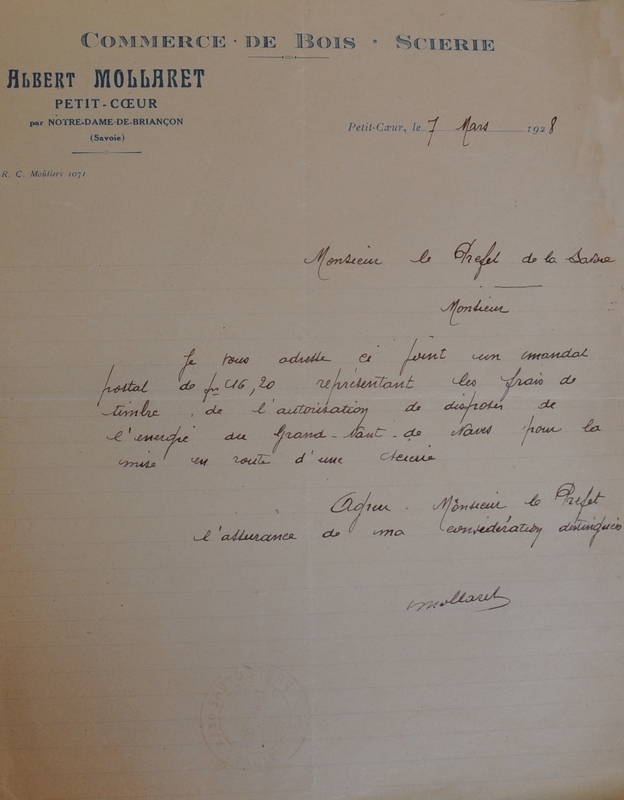 COMMERCE · DE BOIS · SCIERIE
ALBERT MOLLARET
PETIT-CŒUR
par NOTRE-DAME-DE-BRIANÇON
(Savoie)
R. C. Moûtiers 1071
Petit-Cœur, le 7 Mars 1928
Monsieur le Préfet de la Savoie
Monsieur
Je vous adresse ci joint un mandat
postal de 16,20 représentant les frais de
timbre de l'autorisation de disposer de
l'energie du Grand-Nant-de Naves pour la
mise en route d'une scierie
Agreer Monsieur le Préfet
l'assurance de ma considération distinguée
Mollaret